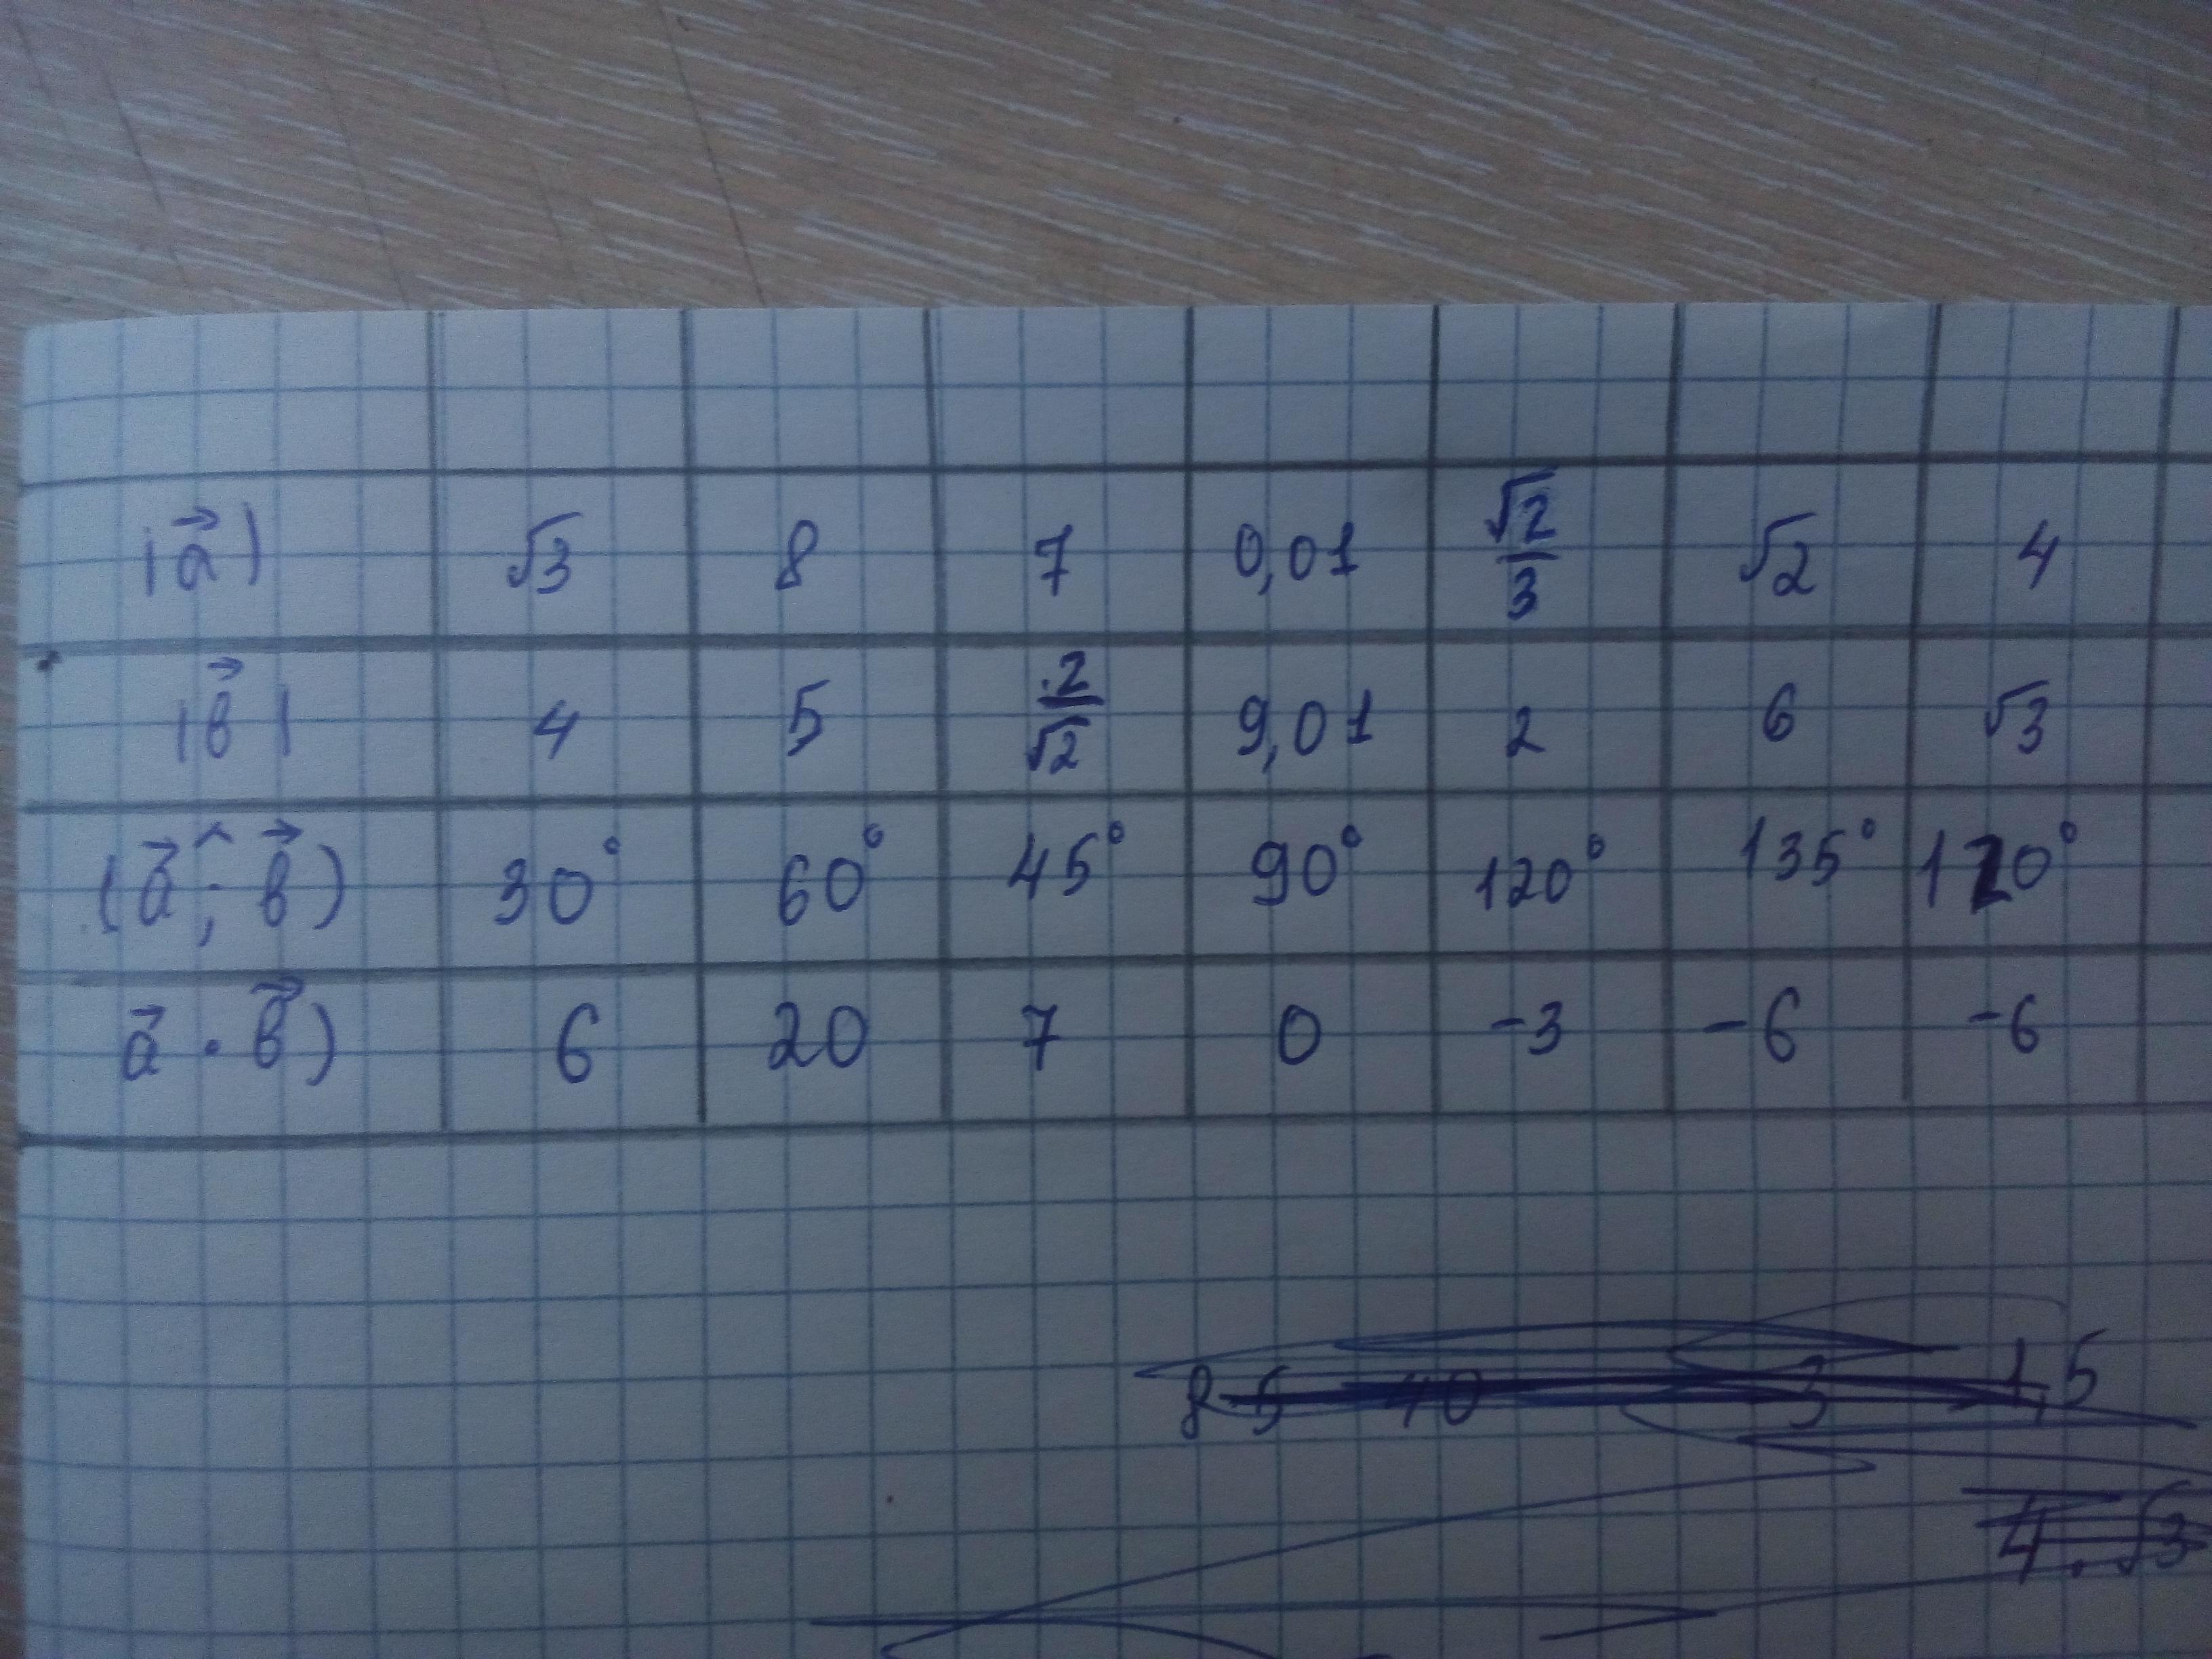 |a⃗| √3 8 7 0,01 √2/3 √2 4
|в⃗| 4 5 2/√2 9,01 2 6 √3
(a⃗ ^; в⃗) 30° 60° 45° 90° 120° 135° 120°
a⃗ · в⃗) 6 20 7 0 -3 -6 -6
8 5 40 3 1,5
4 · √3